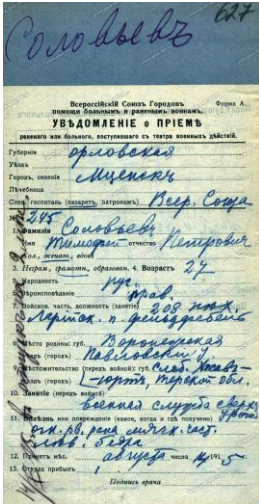 627
Соловьевъ
Всероссійскій Союзъ Городовъ
помощи больнымъ и раненымъ воинамъ.
Форма А.
УВѢДОМЛЕНІЕ о ПРІЕМѢ
раненаго или больного, поступившаго съ театра военныхъ дѣйствій.
Губернія Орловская
Уѣздъ
Городъ, селеніе Мценскъ
Лѣчебница
госпиталь (лазаретъ, патронатъ) Всер. Союза
№ 245
Фамилія Соловьевъ
Имя Тимофей отчество Петровичъ
женат., вдов.
3. Неграм., грамотн., образован. 4. Возрастъ 27
Народность рус.
Вѣроисповѣданіе прав.
Войсков. часть, должность (занятіе) 308 пѣх.
п. фельдфебель
Мѣсто родины: губ. Воронежская
(городъ) Павловскій у.
Мѣстожительство (передъ войной): губ. Слоб. Хасавъ-
(городъ) Юртъ, Терской обл.
10. Занятіе (передъ войной)
военная служба сверхъ
Болѣзнь или поврежденіе (какое, когда и гдѣ получено)
огн. рв. рана мягк. част.
лѣв. бедра
12. Принятъ мѣс. августа числа 1915
13. Откуда прибылъ
Подпись врача